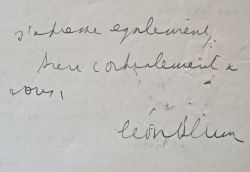 j'adresse également,
bien cordialement à
vous,
Léon Blum